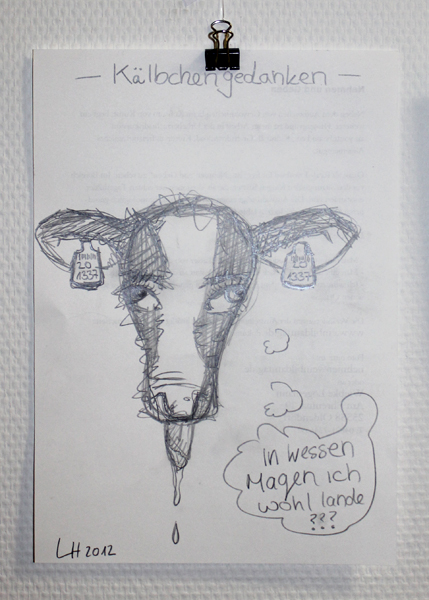 — Kälbchengedanken —
20
1337
20
1337
In wessen
Magen ich
wohl lande
???
LH 2012